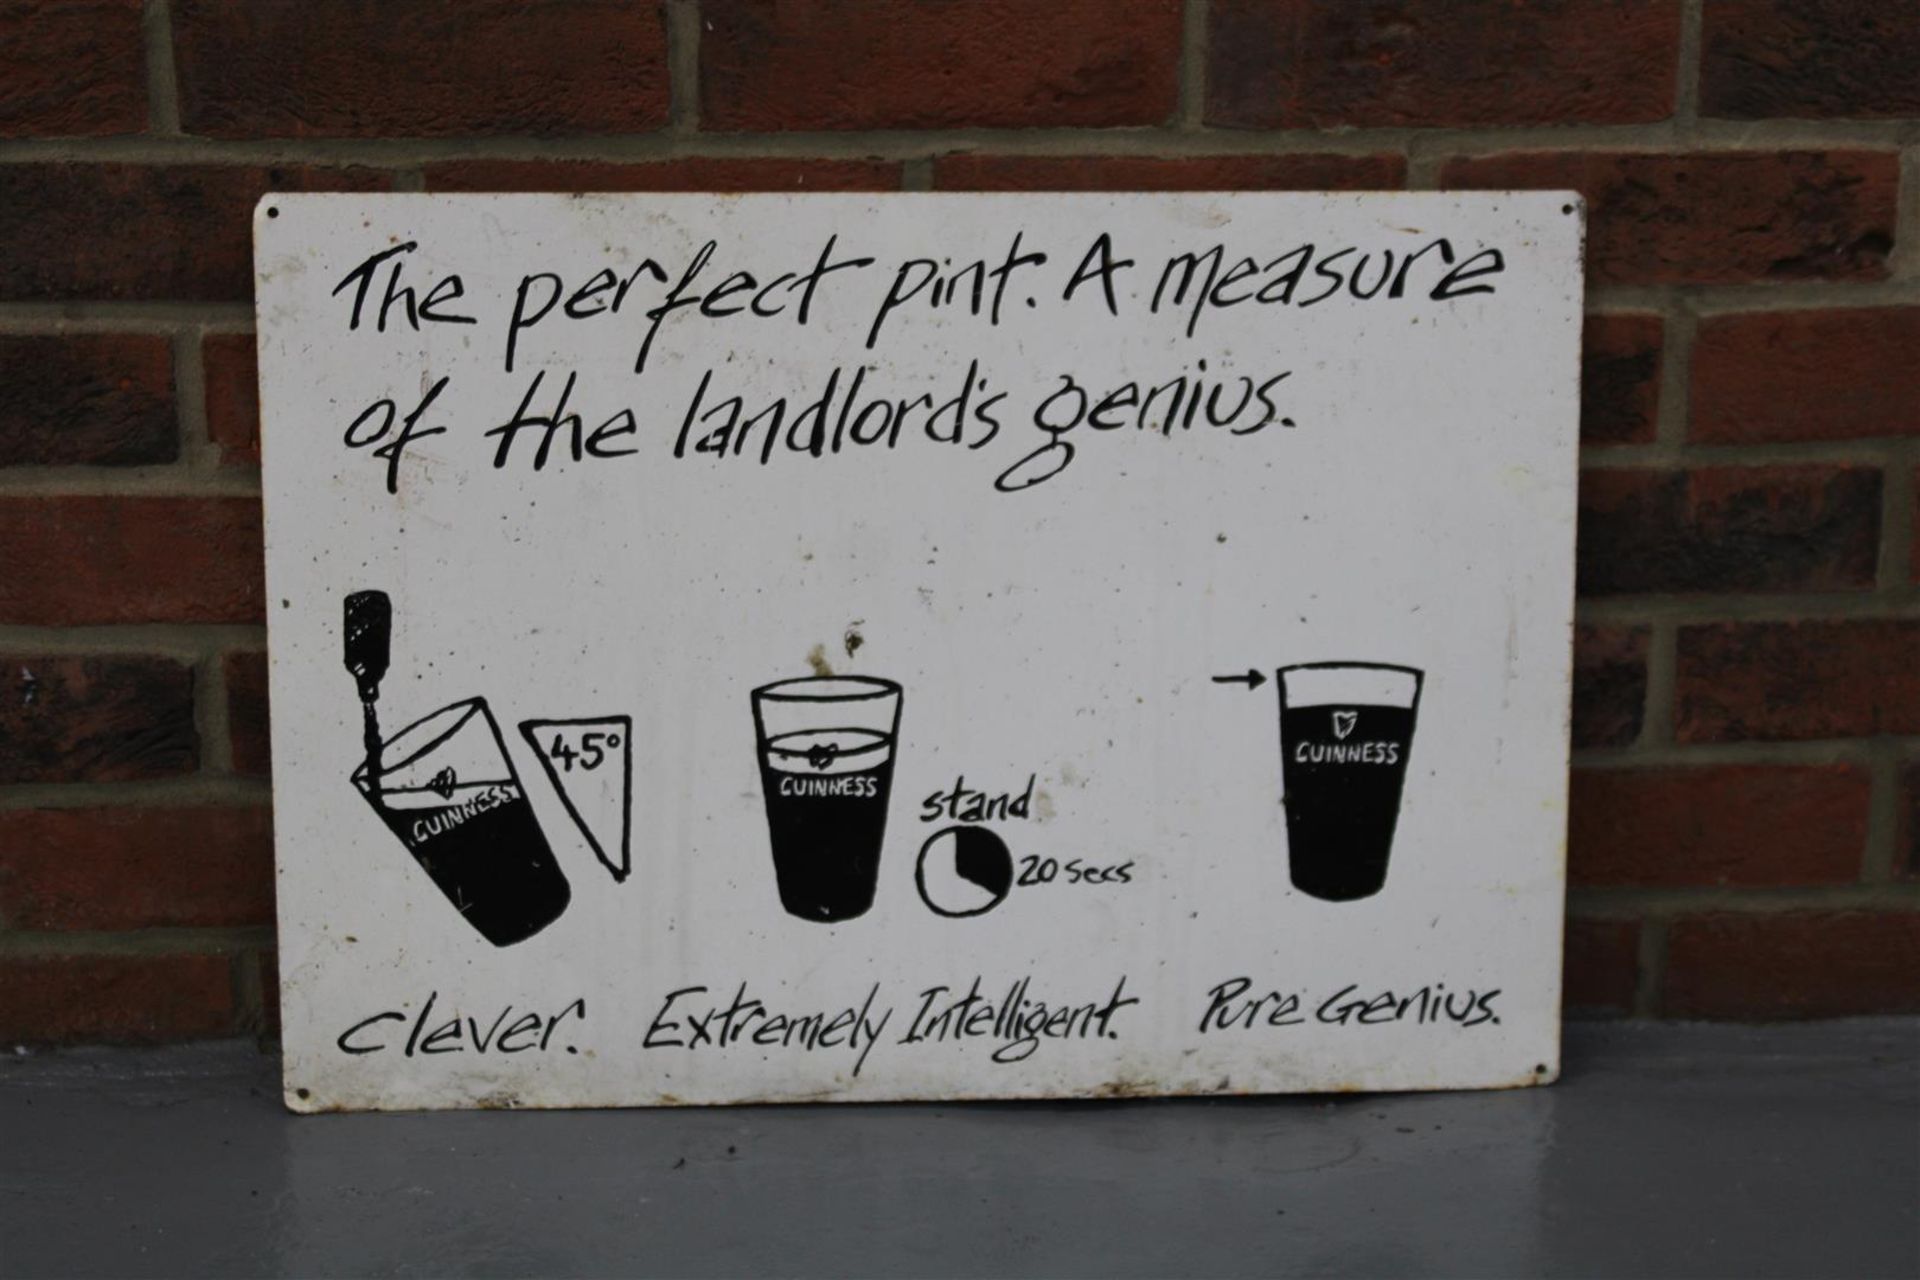 The perfect pint. A measure
of the landlord's genius.
45°
GUINNESS
GUINNESS
stand
20 secs
GUINNESS
Clever. Extremely Intelligent. Pure Genius.